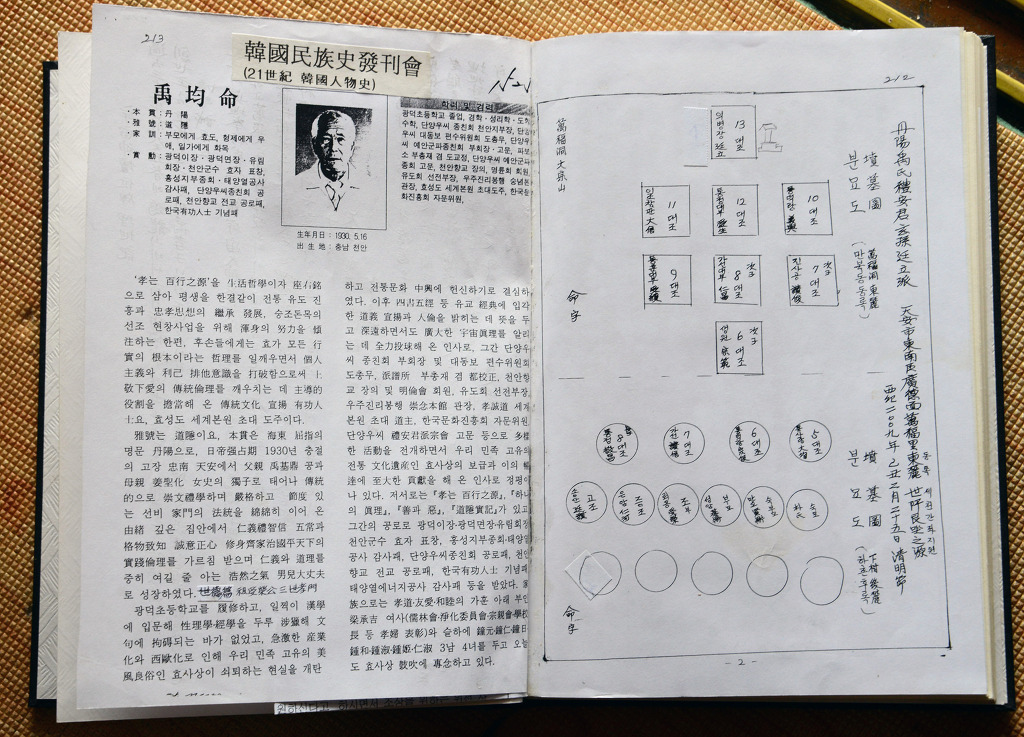 213
韓國民族史發刊會
(21世紀 韓國人物史)
禹均命
本 貫 : 丹 陽
雅 號 : 道 隱
家 訓 : 부모에게 효도, 형제에게 우
애, 일가에게 화목
광덕이장·광덕면장·유림
회장·천안군수 효자 표창,
홍성지부중회·태양열공사
감사패, 단양우씨종친회 공
로패, 천안향교 전교 공로패,
한국有功人士 기념패
生年月日 : 1930. 5.16
出 生 地 : 忠南 천안
학력 및 경력
광덕초등학교 졸업, 경학·성리학·도학
수학, 단양우씨 종친회 천안지부장, 단양
우씨 대동보 편수위원회 도총무, 단양우
씨 예안군파종친회 부회장·고문, 파보
소 부총재 겸 도교정, 단양우씨 예안군파
종회 고문, 천안향교 장의, 명륜회 회원,
유도회 선전부장, 우주진리봉행 숭념본
관장, 효성도 세계본원 초대도주, 한국문
화진흥회 자문위원,
'孝는 百行之源'을 生活哲學이자 座右銘
으로 삼아 평생을 한결같이 전통 유도 진
흥과 忠孝思想의 繼承 發展, 숭조돈목의
선조 현창사업을 위해 渾身의 노력을 傾
注하는 한편, 후손들에게는 효가 모든 行
實의 根本이라는 哲理를 일깨우면서 個人
主義와 利己 排他意識을 打破함으로써 上
敬下愛의 傳統倫理를 깨우치는 데 主導的
役割을 擔當해 온 傳統文化 宣揚 有功人
士요, 효성도 세계본원 초대 도주이다.
雅號는 道隱이요, 本貫은 海東 屈指의
명문 丹陽으로, 日帝强占期 1930년 충절
의 고장 忠南 天安에서 父親 禹基鼎 공과
母親 姜聖化 女史의 獨子로 태어나 傳統
的으로 崇文禮學하며 嚴格하고 節度 있
는 선비 家門의 法統을 綿綿히 이어 온
由緖 깊은 집안에서 仁義禮智信 五常과
格物致知 誠意正心 修身齊家治國平天下의
實踐倫理를 가르침 받으며 仁義와 道理를
중히 여길 줄 아는 浩然之氣 男兒大丈夫
로 성장하였다.
광덕초등학교를 履修하고, 일찍이 漢學
에 입문해 性理學·經學을 두루 涉獵해 文
句에 拘碍되는 바가 없었고, 急激한 産業
化와 西歐化로 인해 우리 민족 고유의 美
風良俗인 효사상이 쇠퇴하는 현실을 개탄
하고 전통문화 中興에 헌신하기로 결심하
였다. 이후 四書五經 등 유교 經典에 입각
한 道義 宣揚과 人倫을 밝히는 데 뜻을 두
고 深遠하면서도 廣大한 宇宙眞理를 알리
는 데 全力投球해 온 인사로, 그간 단양우
씨 종친회 부회장 및 대동보 편수위원회
도총무, 派譜所 부총재 겸 都校正, 천안향
교 장의 및 明倫會 회원, 유도회 선전부장,
우주진리봉행 崇念本館 관장, 孝誠道 세계
본원 초대 道主, 한국문화진흥회 자문위원,
단양우씨 禮安君派宗會 고문 등으로 多樣
한 活動을 전개하면서 우리 民族 고유의
전통 文化遺産인 효사상의 보급과 이의
達에 至大한 貢獻을 해 온 인사로 정평이
나 있다. 저서로는 『孝는 百行之源』, 『하나
의 眞理』, 『善과 惡』, 『道隱實記』가 있고,
그간의 공로로 광덕이장·광덕면장·유림회장·
천안군수 효자 표창, 홍성지부중회·태양열
공사 감사패, 단양우씨종친회 공로패, 천안
향교 전교 공로패, 한국有功人士 기념패,
태양열에너지공사 감사패 등을 받았다. 家
族으로는 孝道·友愛·和睦의 가훈 아래 부인
梁承吉 여사(儒林會·淨化委員會·宗親會·學校
長 등 孝婦 表彰)와 슬하에 鍾元·鍾仁·鍾日·
鍾和·鍾淑·鍾姬·仁淑 3남 4녀를 두고 오늘
도 효사상 鼓吹에 專念하고 있다.
212
丹陽禹氏禮安君玄孫廷立派
天安市東南區廣德面萬福里東麓
西紀二00九年 己丑三月二十五日 清明節
분 墳
묘 墓
도 圖
(萬福洞東麓
만복동동록)
萬福洞大宗山
의병장 廷立
13
대조
11
대조
12
대조
10
대조
9
대조
次子
8
대조
次子
7
대조
次子
6
대조
命字
8대조
7대조
6대조
5대조
고조
증조
조부
부모
숙부모
숙모
분 墳
묘 墓
도 圖
(下村後麓
하촌후록)
命字
- 2 -